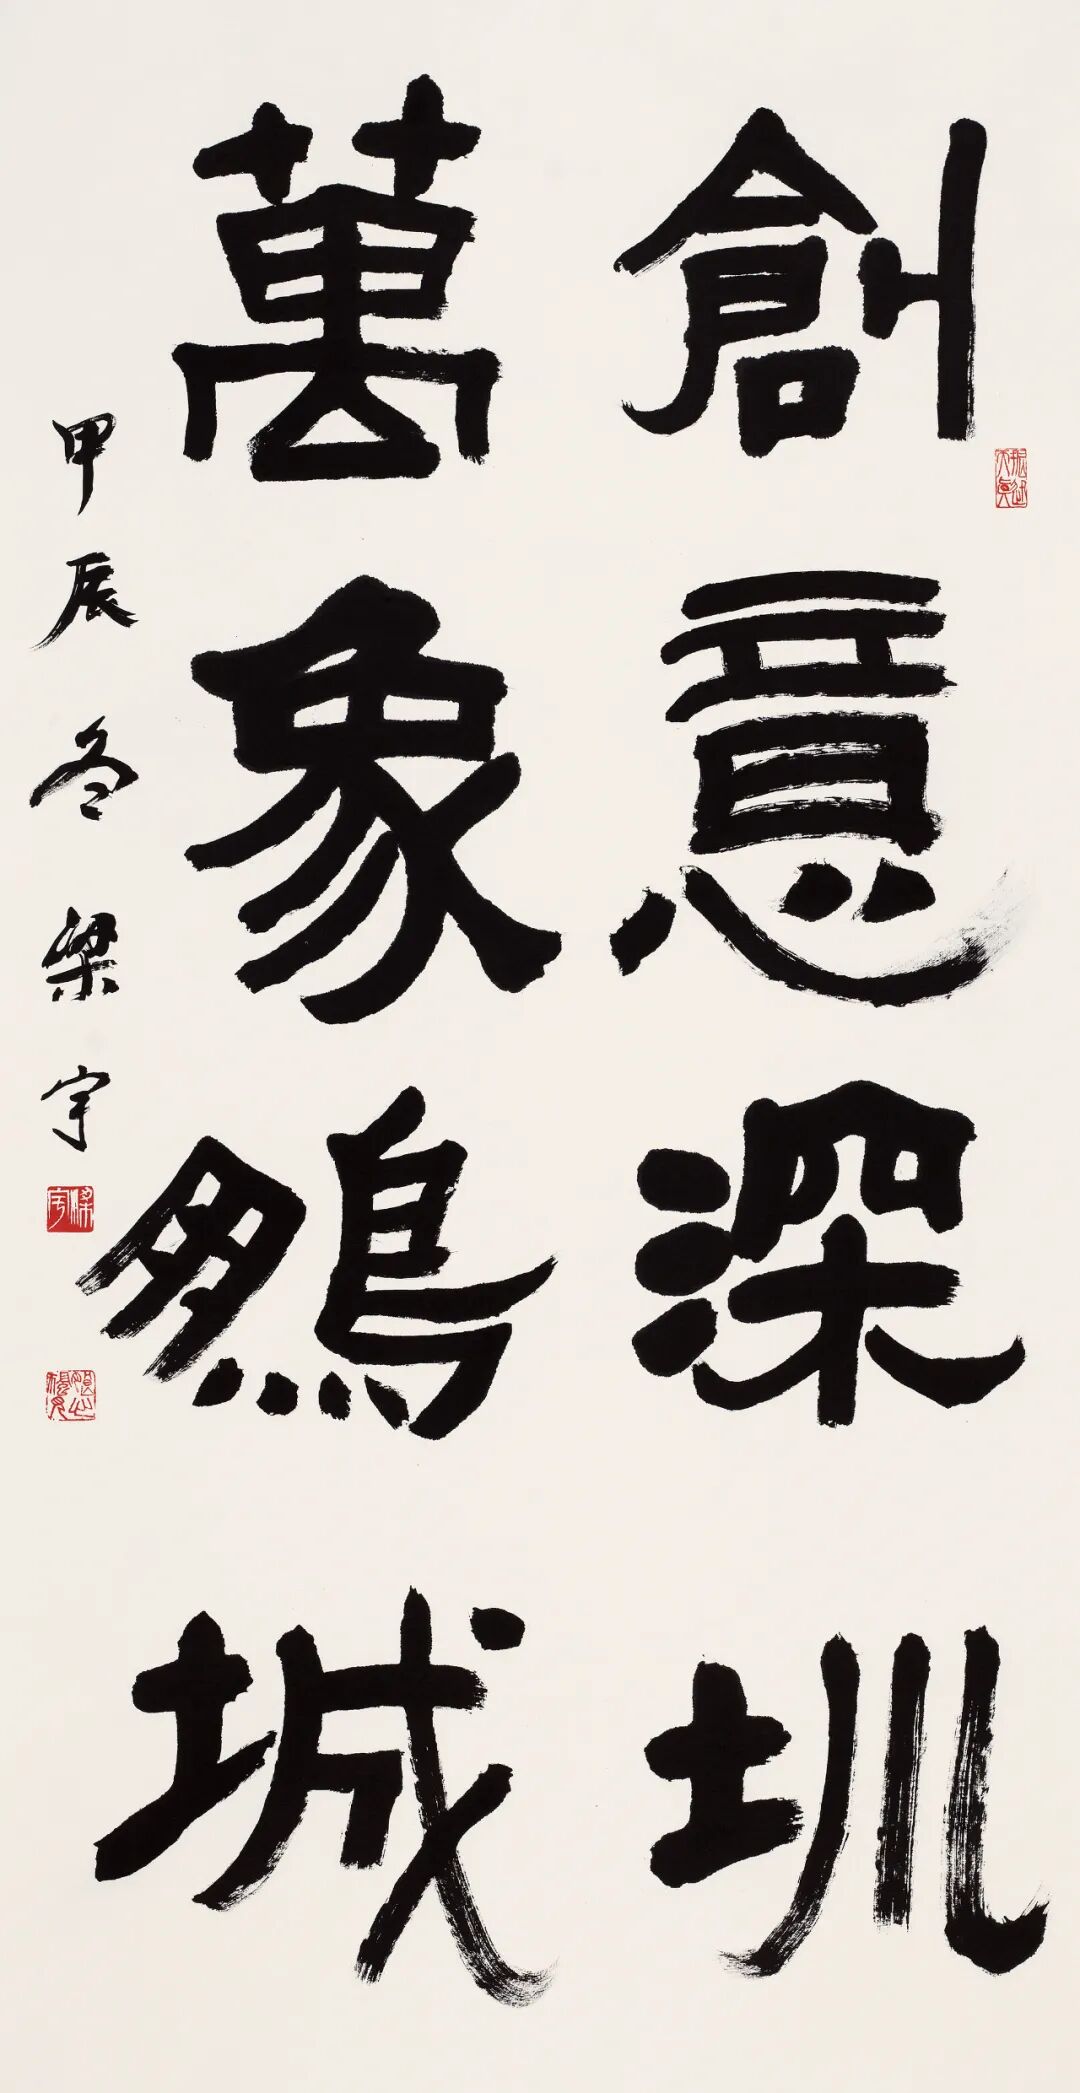 創意深圳
萬象鵬城
甲辰冬梁宇
梁宇